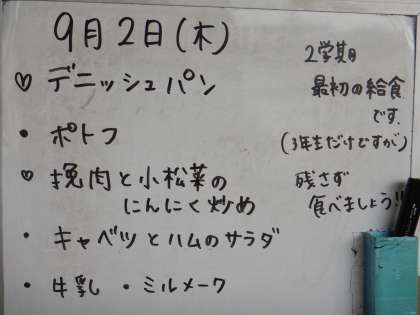 9月2日(木)
♡ デニッシュパン
・ ポトフ
♡ 挽肉と小松菜の
にんにく炒め
・ キャベツとハムのサラダ
・ 牛乳 ・ミルメーク
2学期
最初の給食
です.
(3年生だけですが)
残さず
食べましょう!!